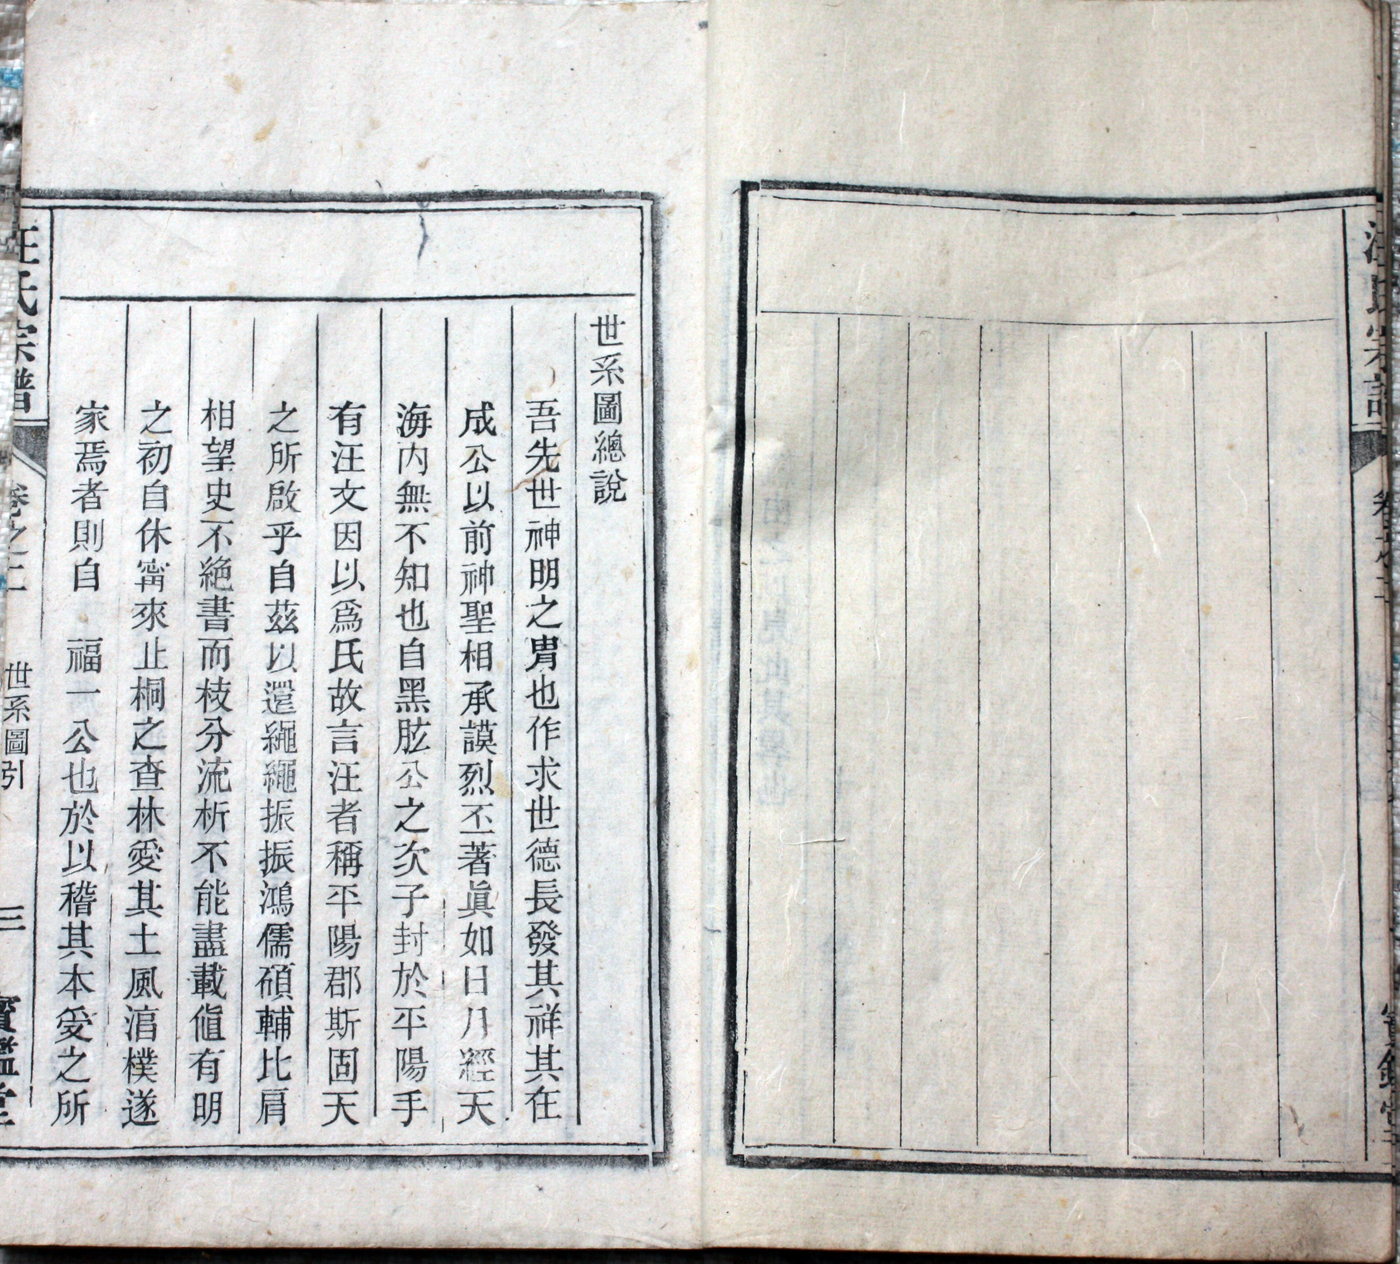 汪氏宗譜
世系圖總說
吾先世神明之胄也作求世德長發其祥其在
成公以前神聖相承謨烈丕著眞如日月經天
海内無不知也自黑肱公之次子封於平陽手
有汪文因以爲氏故言汪者稱平陽郡斯固天
之所啟乎自茲以還繩繩振振鴻儒碩輔比肩
相望史不絶書而枝分流析不能盡載値有明
之初自休甯來止桐之查林愛其土風涫樸遂
家焉者則自 福一公也於以稽其本爰之所
汪氏宗譜
卷之二
世系圖引
三
寶鑑堂